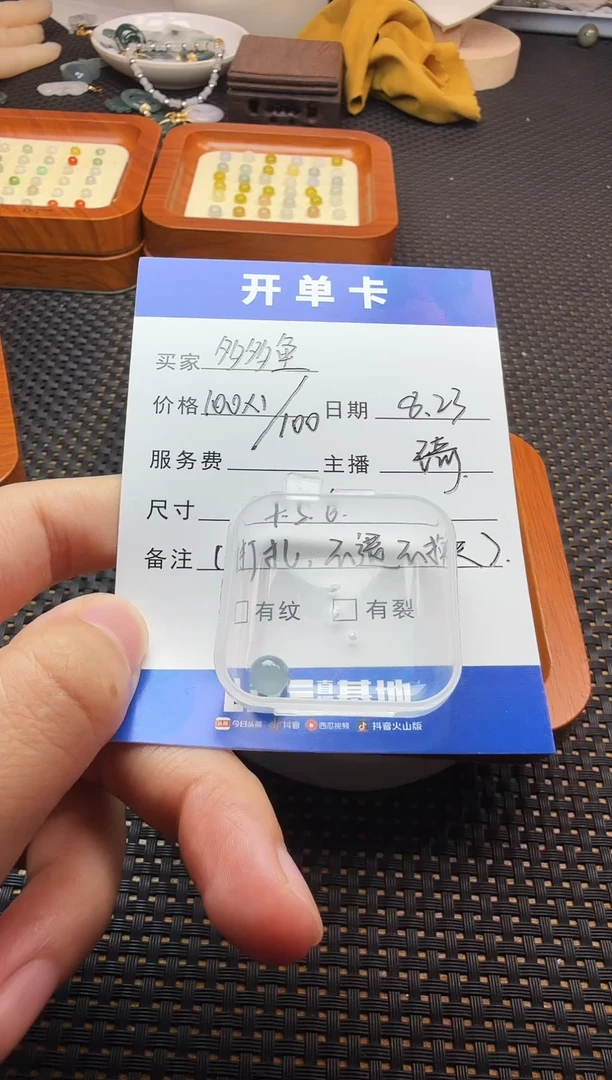 开单卡
买家 多多鱼
价格 100×1/100 日期 8.23
服务费 主播 琦
尺寸
备注 (打孔, 不退 不换).
有纹 有裂
基地
今日头条 抖音 西瓜视频 抖音火山版